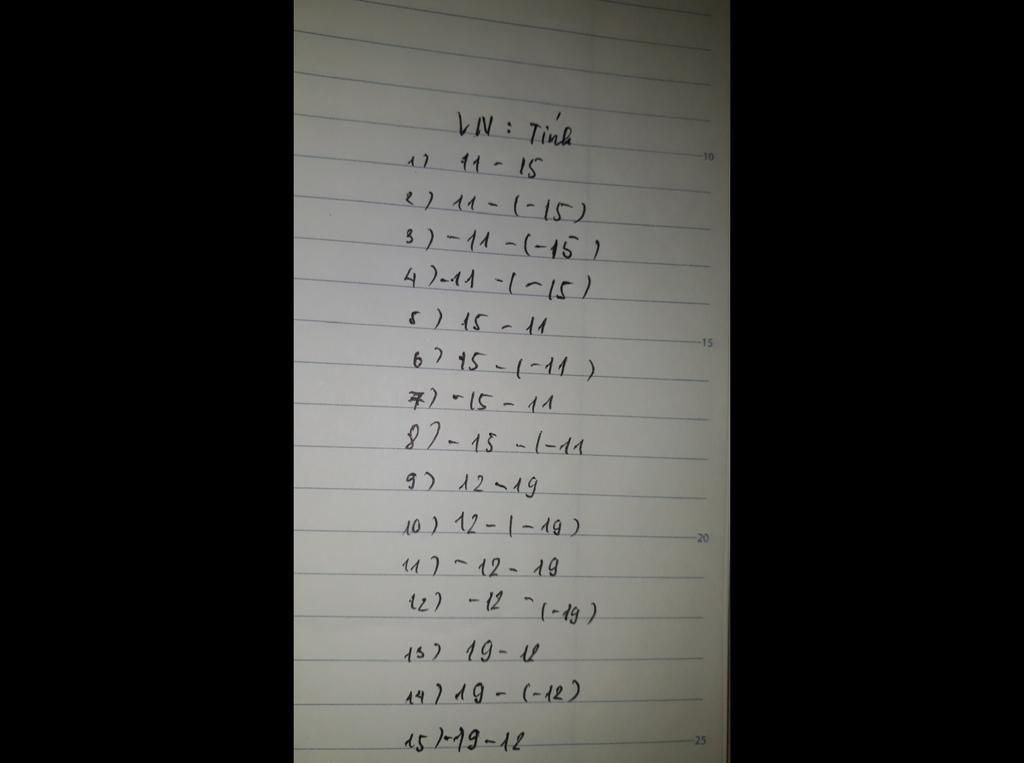 VN : Tính
1) 11 - 15
2) 11 - (-15)
3) -11 - (-15)
4) -11 - (-15)
5) 15 - 11
6) 15 - (-11)
7) -15 - 11
8) - 15 - (-11
9) 12 - 19
10) 12 - (-19)
11) -12 - 19
12) -12 - (-19)
13) 19 - 12
14) 19 - (-12)
15) -19 - 12
10
15
20
25